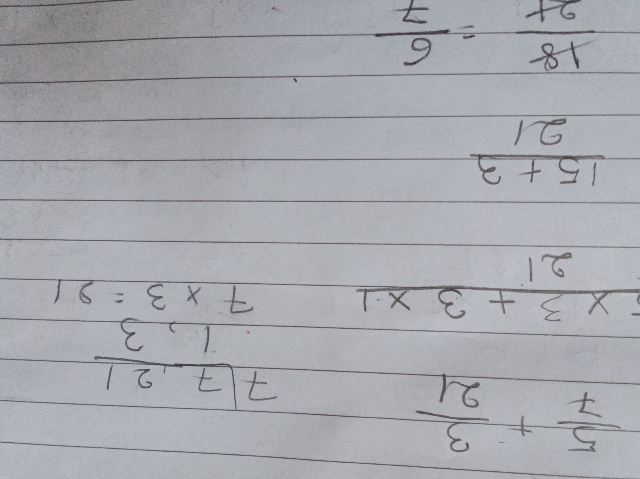 5/7 + 3/21
7 | 7, 21
1, 3
5 × 3 + 3 × 1 / 21
7 × 3 = 21
15 + 3 / 21
18/21 = 6/7